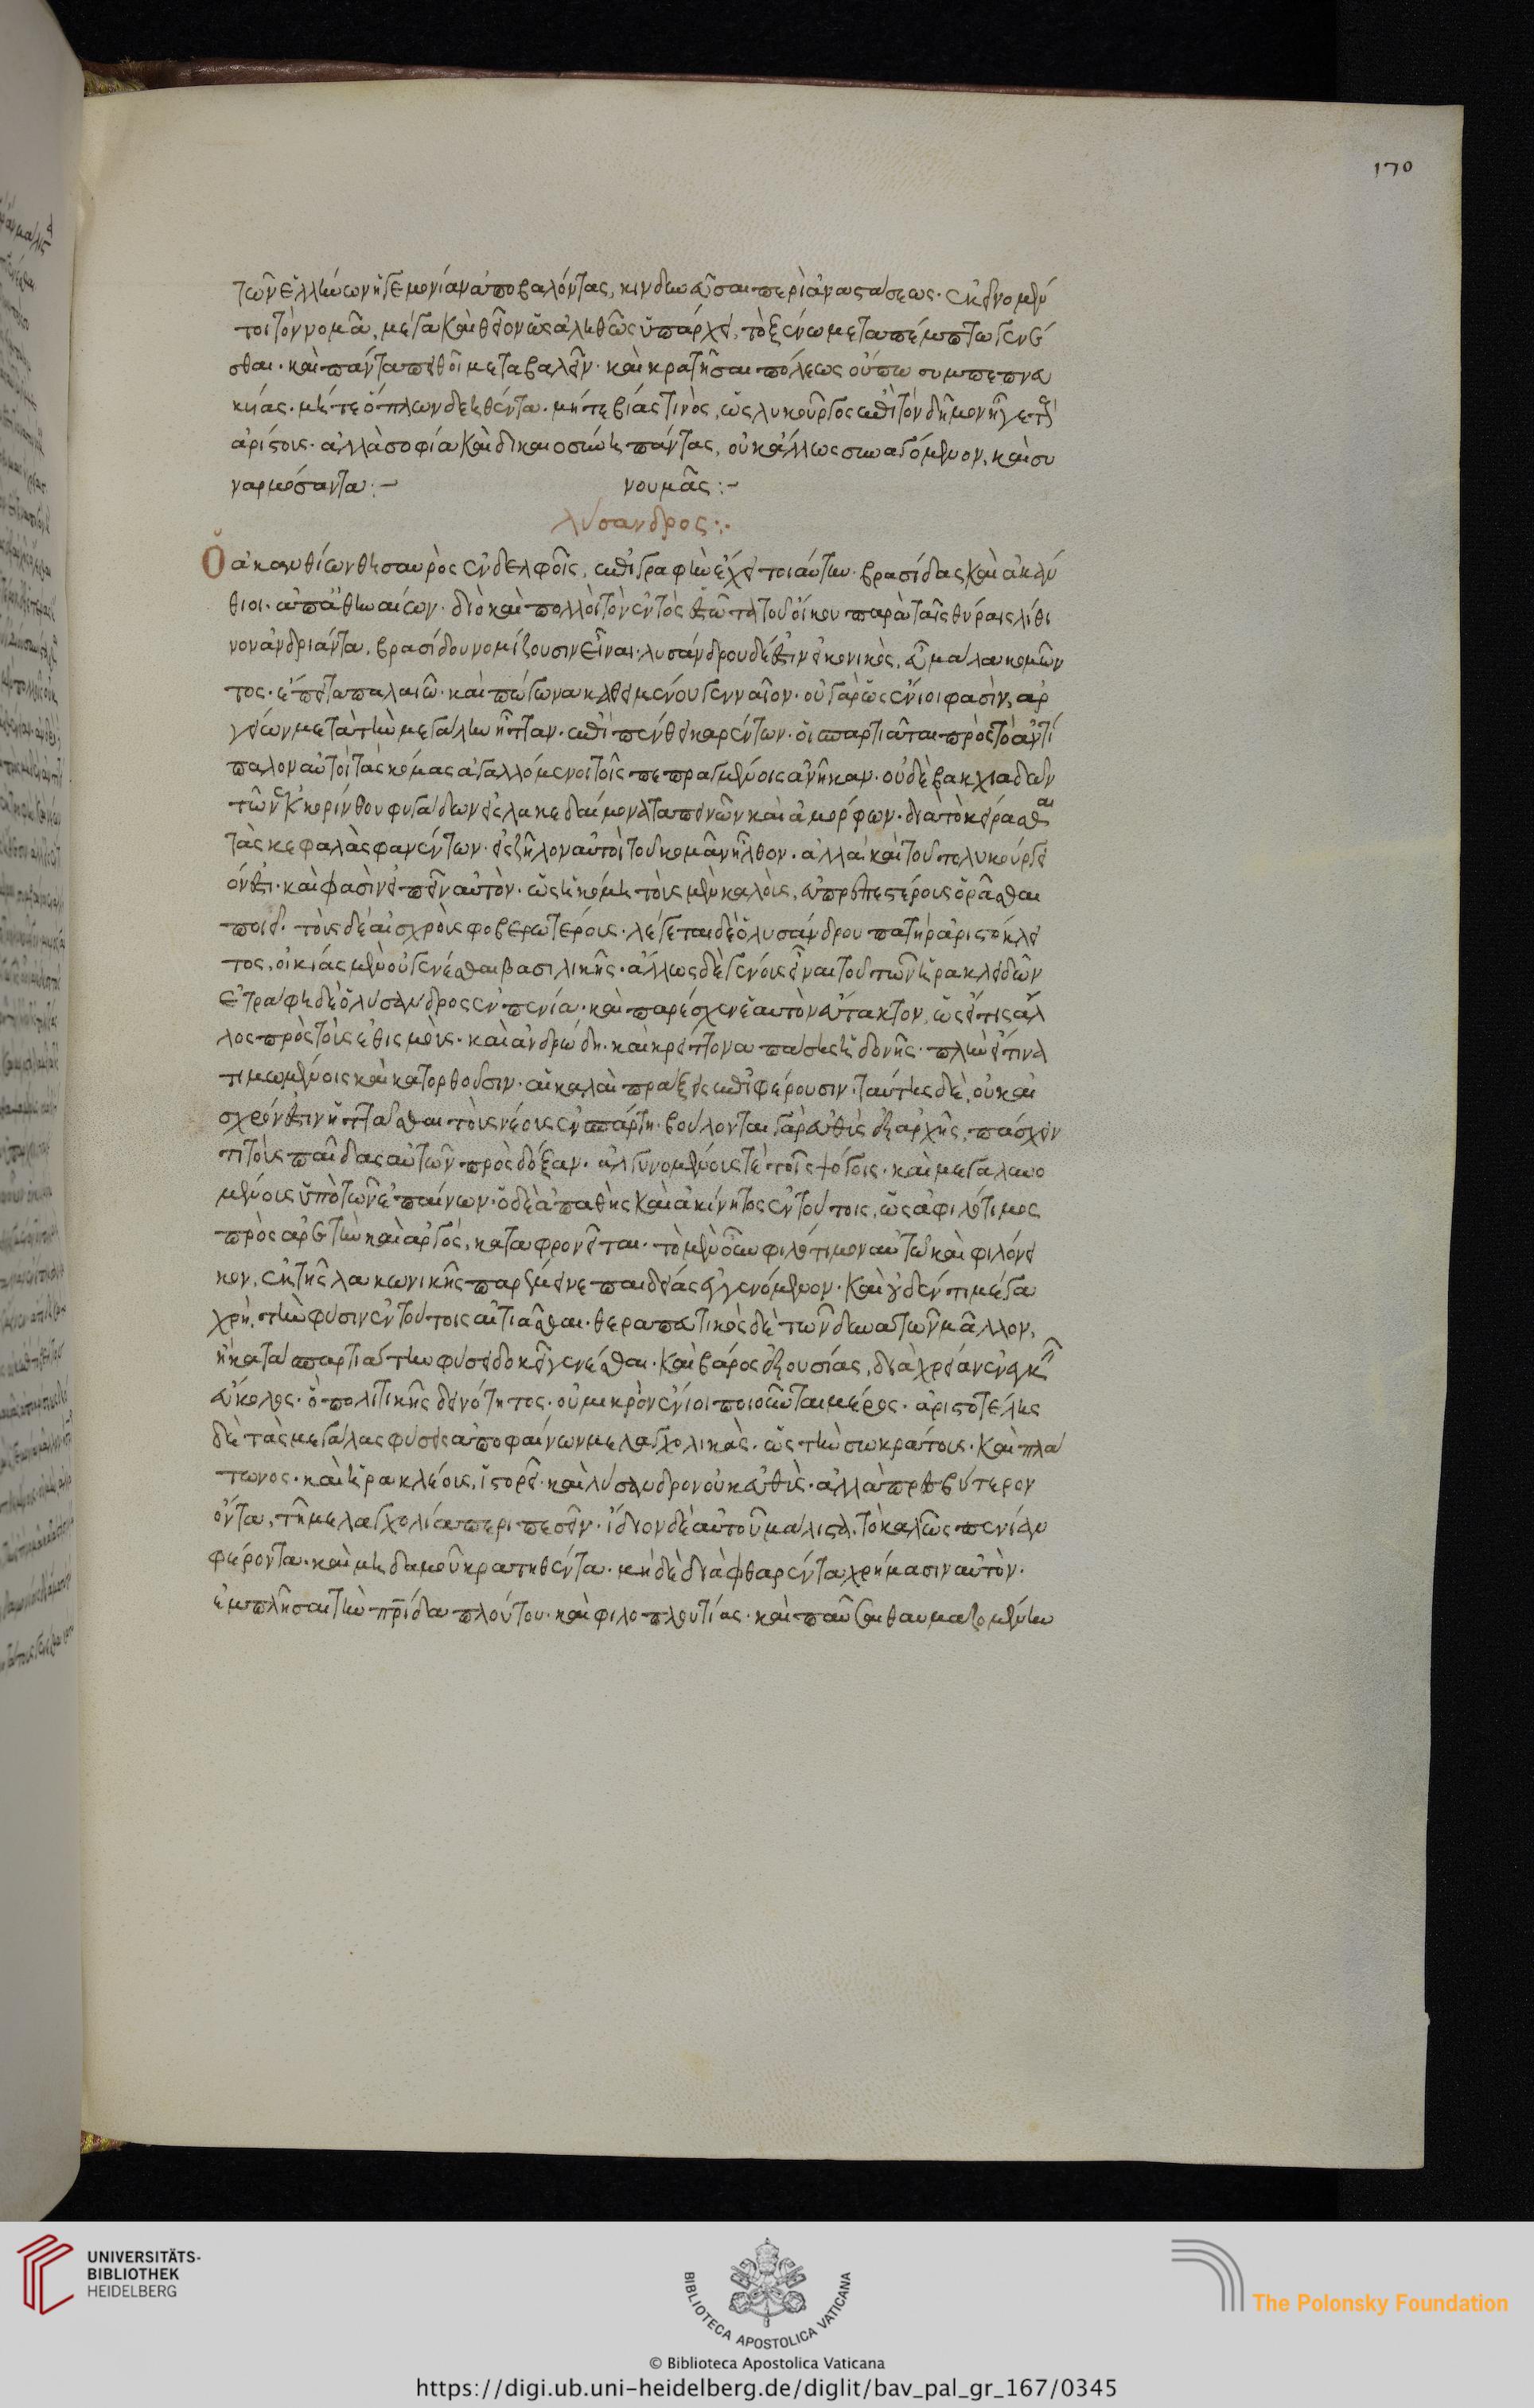 170
τῶν ἑλλήνων ἡγεμονίαν ἀποβαλόντας, κινδυνεῦσαι περὶ ἀναστάσεως. ἐκεῖνο μέν
τοι τὸν νομᾶ, μέγα καὶ θεῖον ὡς ἀληθῶς ὑπάρχει, τὸ ξένω μεταπέμπτω γενέ
σθαι. καὶ πάντα πειθοῖ μεταβαλεῖν. καὶ κρατῆσαι πόλεως οὔπω συμπεπνευ
κυίας. μήτε ὅπλων δεηθέντα. μήτε βίας τινὸς, ὡς λυκοῦργος ἐπὶ τὸν δῆμον ἦγε τοὺς
ἀρίστους. ἀλλὰ σοφία καὶ δικαιοσύνη πάντας, οὐκ ἄλλως συναγόμενον, καὶ συ
ναρμόσαντα:-
νουμᾶς:-
λύσανδρος:.
Ὁ ἀκανθίων θησαυρὸς ἐν δελφοῖς, ἐπιγραφὴν ἔχει τοιαύτην. βρασίδας καὶ ἀκάν
θιοι. ἀπ' ἀθηναίων. διὸ καὶ πολλοὶ τὸν ἐντὸς ἑστῶτα τοῦ οἴκου παρὰ ταῖς θύραις λίθι
νον ἀνδριάντα, βρασίδου νομίζουσιν εἶναι. λυσάνδρου δέ ἐστιν εἰκονικὸς, εὖ μάλα κομῶν
τος. ἔπειτα παλαιῶ. καὶ πώγωνα καθειμένου γενναῖον. οὐ γὰρ ὡς ἔνιοι φασὶν, ἀρ
γείων μετὰ τὴν μεγάλην ἧτταν. ἐπὶ πένθει καρέντων. οἱ σπαρτιᾶται πρὸς τὸ ἀντί
παλον αὐτοὶ τὰς κόμας ἀγαλλόμενοι τοῖς πεπραγμένοις ἀνῆκαν. οὐδὲ βακχιαδῶν
τῶν ἐκ κορίνθου φυγάδων εἰς λακεδαίμονα ταπεινῶν καὶ ἀμόρφων. διὰ τὸ κείρασθαι
τὰς κεφαλὰς φανέντων. εἰς ζῆλον αὐτοὶ τοῦ κομᾶν ἦλθον. ἀλλὰ καὶ τοῦτο λυκούργει
όν ἐστι. καὶ φασὶν εἰπεῖν αὐτὸν. ὡς ἡ κόμη τοὺς μὲν καλοὺς, εὐπρεπεστέρους ὁρᾶσθαι
ποιεῖ. τοὺς δὲ αἰσχροὺς φοβερωτέρους. λέγεται δὲ ὁ λυσάνδρου πατὴρ ἀριστόκλει
τος, οἰκίας μὲν οὐ γενέσθαι βασιλικῆς. ἄλλως δὲ γένους εἶναι τοῦ τῶν ἡρακλειδῶν
ἐτράφη δὲ ὁ λύσανδρος ἐν πενία. καὶ παρέσχεν ἑαυτὸν εὔτακτον, ὡς εἴ τις ἄλ
λος πρὸς τοὺς ἐθισμοὺς. καὶ ἀνδρώδη. καὶ κρείττονα πάσης ἡδονῆς. πλὴν εἴ τινα
τιμωμένοις καὶ κατορθοῦσιν. αἱ καλαὶ πράξεις ἐπιφέρουσιν. ταύτης δὲ, οὐκ αἰ
σχρόν ἐστιν ἡττᾶσθαι τοὺς νέους ἐν σπάρτη. βούλονται γὰρ εὐθὺς ἐξ ἀρχῆς, πάσχειν
τι τοὺς παῖδας αὐτῶν πρὸς δόξαν. ἀλγυνομένους τὲ τοῖς ψόγοις. καὶ μεγαλυνο
μένους ὑπὸ τῶν ἐπαίνων. ὁ δὲ ἀπαθὴς καὶ ἀκίνητος ἐν τούτοις, ὡς ἀφιλότιμος
πρὸς ἀρετὴν καὶ ἀργὸς, καταφρονεῖται. τὸ μὲν οὖν φιλότιμον αὐτῶ καὶ φιλόνει
κον, ἐκ τῆς λακωνικῆς παρέμεινε παιδείας ἐγγενόμενον. καὶ οὐδέν τι μέγα
χρὴ, τὴν φύσιν ἐν τούτοις αἰτιᾶσθαι. θεραπευτικὸς δὲ τῶν δυνατῶν μᾶλλον,
ἢ κατὰ σπαρτιάτην φύσει δοκεῖ γενέσθαι. καὶ βάρος ἐξουσίας, διὰ χρείαν ἐνεγκεῖν
εὔκολος. ὃ πολιτικῆς δεινότητος. οὐ μικρὸν ἔνιοι ποιοῦνται μέρος. ἀριστοτέλης
δὲ τὰς μεγάλας φύσεις ἀποφαίνων μελαγχολικὰς. ὡς τὴν σωκράτους. καὶ πλά
τωνος. καὶ ἡρακλέους, ἱστορεῖ. καὶ λύσανδρον οὐκ εὐθὺς. ἀλλὰ πρεσβύτερον
ὄντα, τῆ μελαγχολία περιπεσεῖν. ἴδιον δὲ αὐτοῦ μάλιστα, τὸ καλῶς πενίαν
φέροντα. καὶ μηδαμοῦ κρατηθέντα. μηδὲ διαφθαρέντα χρήμασιν αὐτὸν.
ἐμπλῆσαι τὴν πρίδα πλούτου. καὶ φιλοπλουτίας. καὶ παῦσαι θαυμαζομένην
UNIVERSITÄTS-
BIBLIOTHEK
HEIDELBERG
BIBLIOTECA APOSTOLICA VATICANA
The Polonsky Foundation
© Biblioteca Apostolica Vaticana
https://digi.ub.uni-heidelberg.de/diglit/bav_pal_gr_167/0345